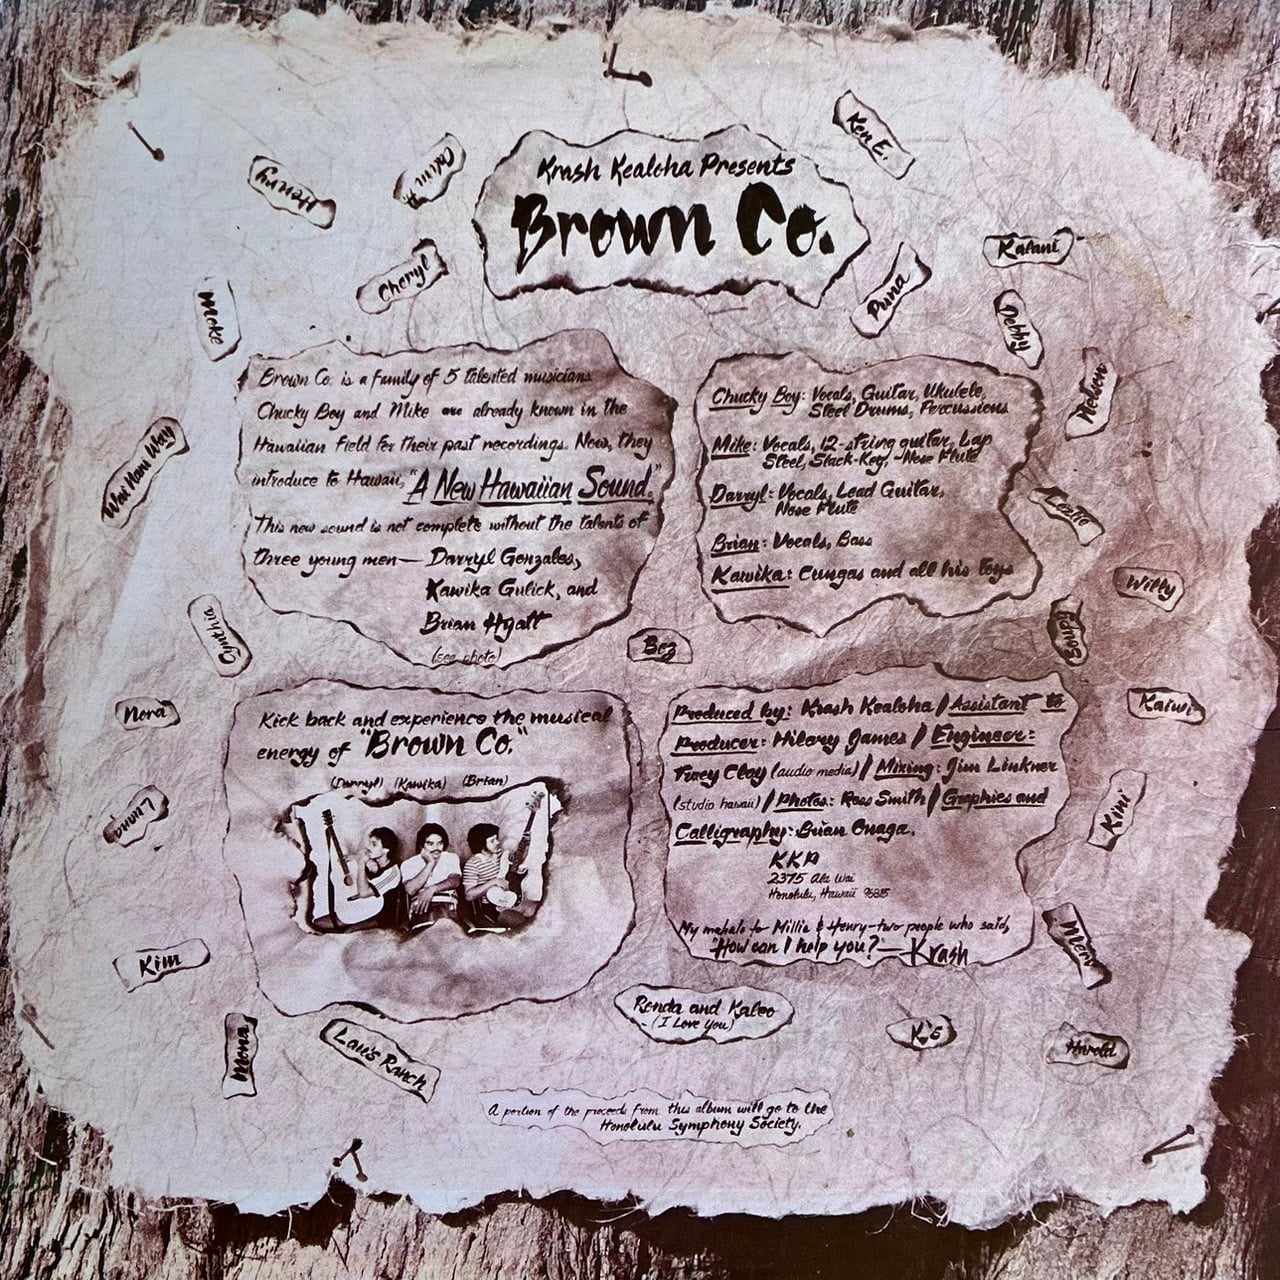 Krash Kealoha Presents
Brown Co.
Ken E.
Henry
Cheryl
Puna
Kalani
Moke
Debby
Nelson
Brown Co. is a family of 5 talented musicians.
Chucky Boy and Mike are already known in the
Hawaiian field for their past recordings. Now, they
introduce to Hawaii, "A New Hawaiian Sound."
This new sound is not complete without the talents of
three young men— Darryl Gonzales,
Kawika Gulick, and
Brian Hyatt
(see photo)
Chucky Boy: Vocals, Guitar, Ukulele,
Steel Drums, Percussions
Mike: Vocals, 12-string guitar, Lap
Steel, Slack-Key, Nose Flute
Darryl: Vocals, Lead Guitar,
Nose Flute
Brian: Vocals, Bass
Kawika: Cungas and all his toys
Wai Hani Way
Leslie
Willy
Cynthia
Boz
Soupy
Nora
Kaiwi
Kick back and experience the musical
energy of "Brown Co."
(Darryl) (Kawika) (Brian)
Produced by: Krash Kealoha / Assistant to
Producer: Hilary James / Engineer:
Tracy Clay (audio media) / Mixing: Jim Linkner
(studio hawaii) / Photos: Ross Smith / Graphics and
Calligraphy: Brian Onaga.
KKP
2375 Ala Wai
Honolulu, Hawaii 96815
My mahalo to Millie & Henry-two people who said,
"How can I help you?"—Krash
Luana
Kini
Kim
Merv
Ronda and Kaleo
(I Love You)
K's
Harold
Mona
Lau's Ranch
A portion of the proceeds from this album will go to the
Honolulu Symphony Society.